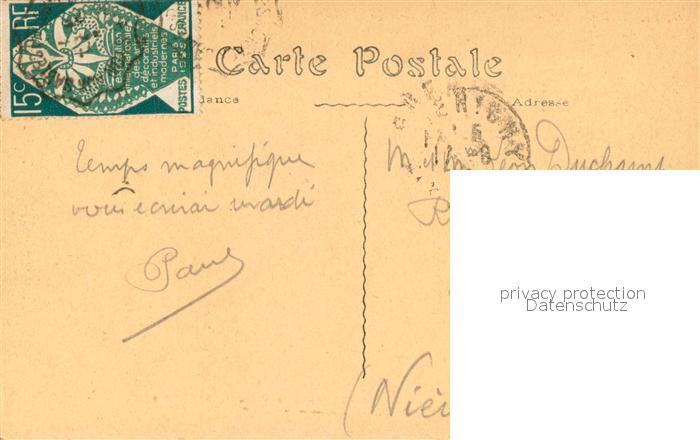 RF
15c
exposition
internationale
des arts
décoratifs
et industriels
modernes
PARIS
1925
POSTES
Carte Postale
dance
Adresse
Temps magnifique
vous écrirai mardi
Paul
M. et Mme Léon Duchamp
R
(Niè
privacy protection
Datenschutz